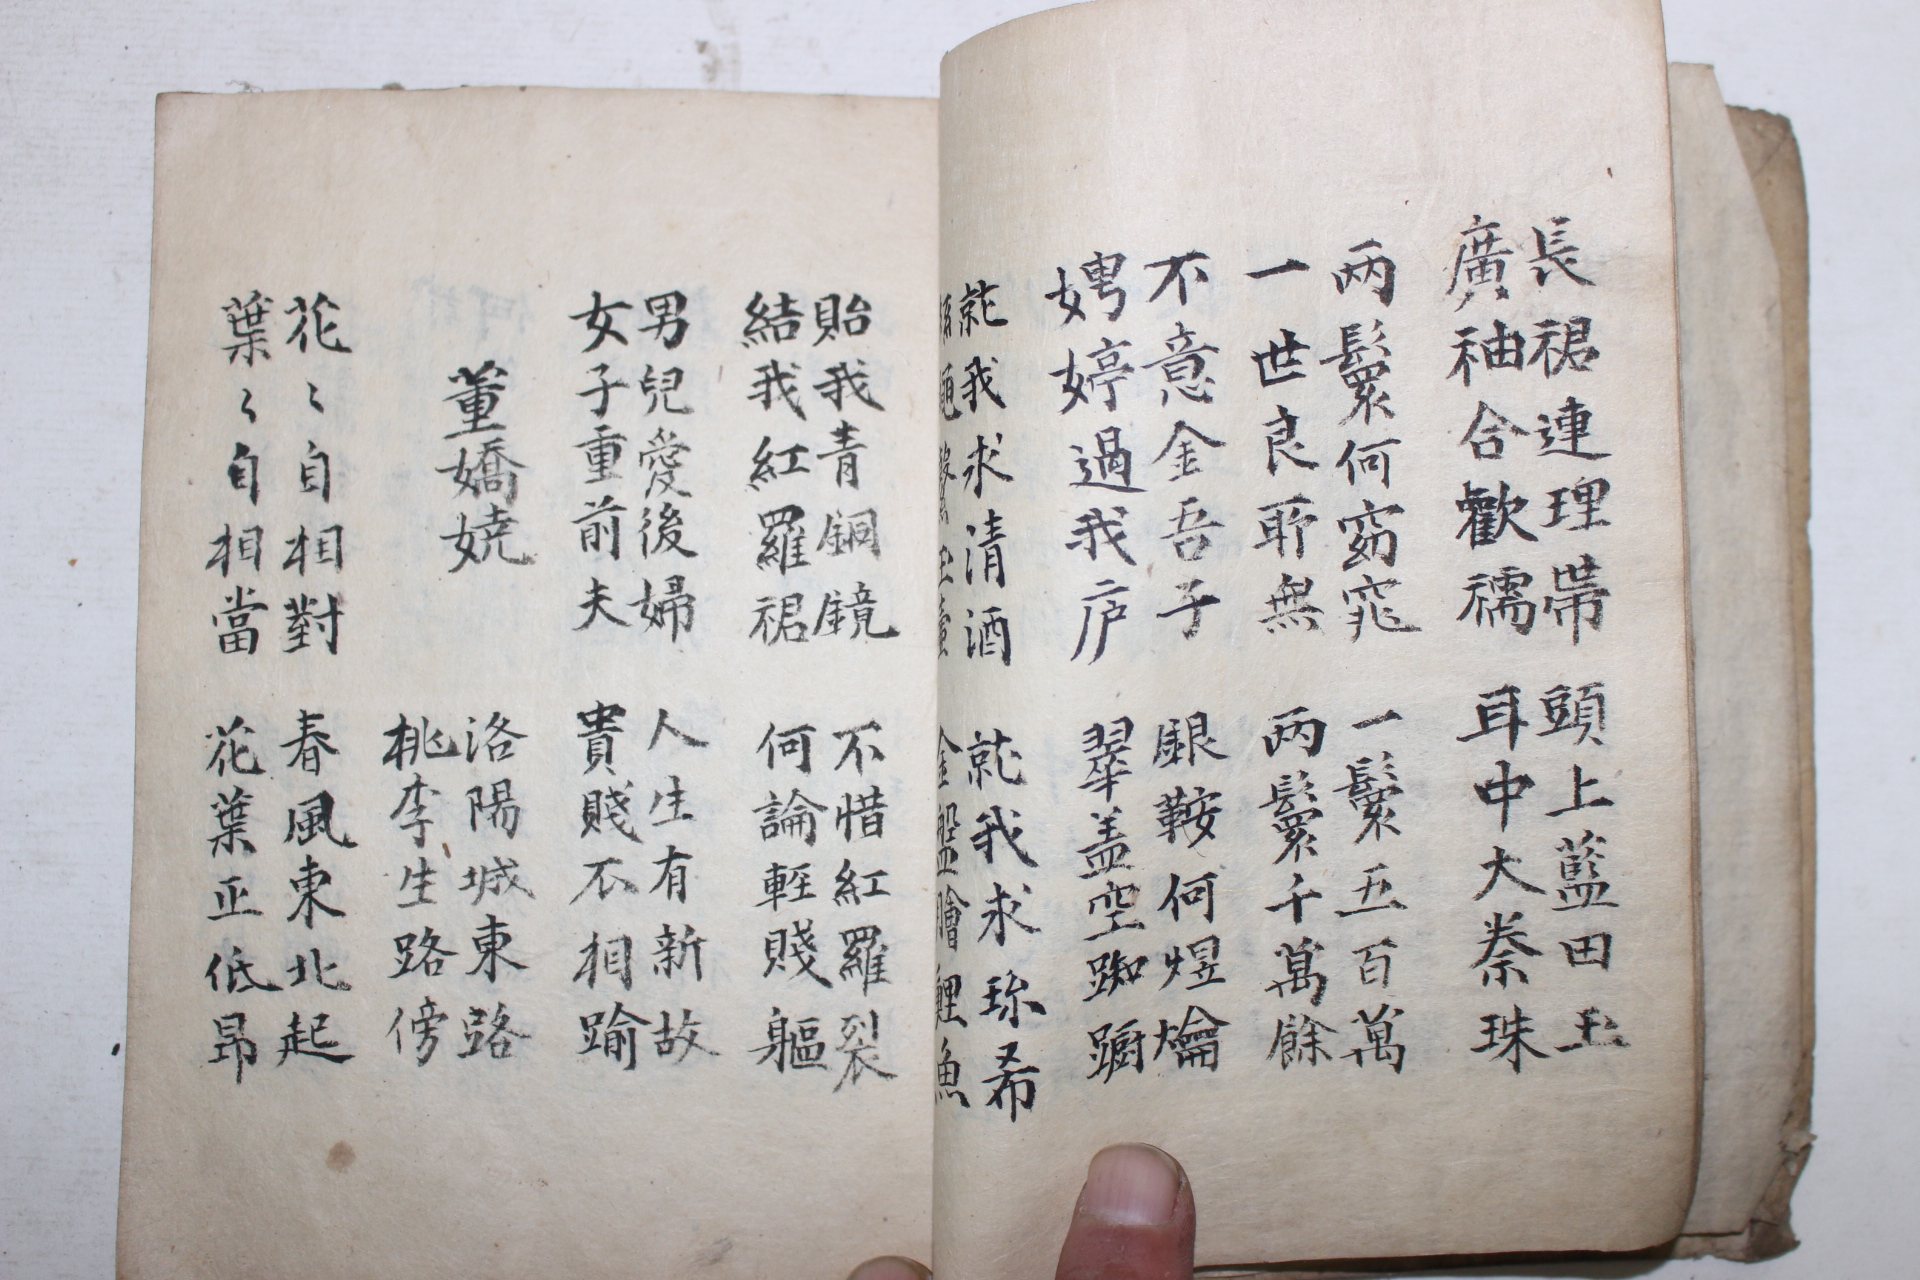 長裾連理帶
廣袖合歡襦
頭上藍田玉
耳中大秦珠
兩鬟何窈窕
一世良所無
一鬟五百萬
兩鬟千萬餘
不意金吾子
娉婷過我庐
銀鞍何煜爚
翠盖空踟躕
就我求清酒
絲繩玉壺
就我求珎肴
金盤膾鯉魚
貽我青銅鏡
結我紅羅裾
不惜紅羅裂
何論輕賤軀
男兒愛後婦
女子重前夫
人生有新故
貴賤不相踰
董嬌嬈
洛陽城東路
桃李生路傍
花〻自相對
葉〻自相當
春風東北起
花葉正低昂